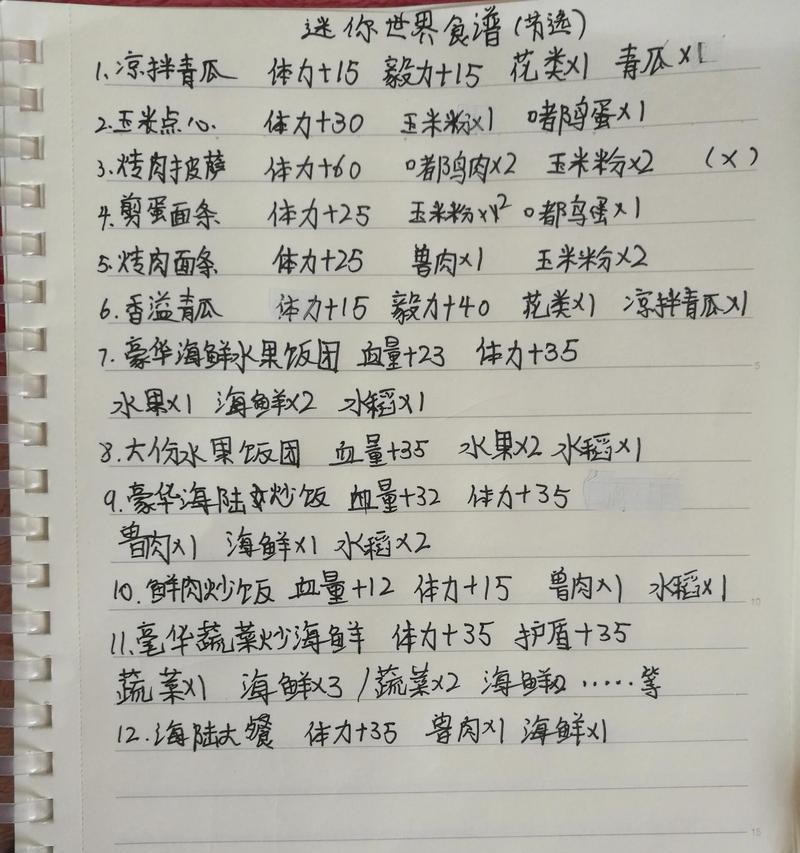 迷你世界食谱(节选)
1.凉拌青瓜 体力+15 毅力+15 花类×1 青瓜×1
2.玉米点心. 体力+30 玉米粉×1 嘟鸟蛋×1
3.烤肉披萨 体力+60 嘟鸟肉×2 玉米粉×2 (×)
4.剪蛋面条 体力+25 玉米粉×2 嘟鸟蛋×1
5.烤肉面条 体力+25 兽肉×1 玉米粉×2
6.香溢青瓜 体力+15 毅力+40 花类×1 凉拌青瓜×1
7.豪华海鲜水果饭团 血量+23 体力+35
水果×1 海鲜×2 水稻×1
8.大份水果饭团 血量+35 水果×2 水稻×1
9.豪华海陆炒饭 血量+32 体力+35
兽肉×1 海鲜×1 水稻×2
10.鲜肉炒饭 血量+12 体力+15 兽肉×1 水稻×1
11.豪华蔬菜炒海鲜 体力+35 护盾+35
蔬菜×1 海鲜×3 /蔬菜×2 海鲜×2 ......等
12.海陆大餐 体力+35 兽肉×1 海鲜×1
5
10
15